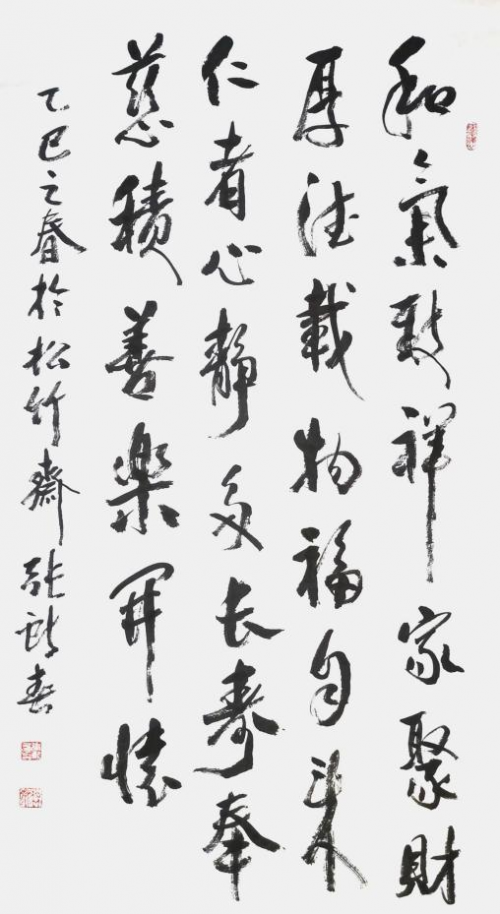 和氣致祥家聚財
厚德載物福自来
仁者心静多长寿奉
慈積善樂開懷
乙巳之春於松竹齋張